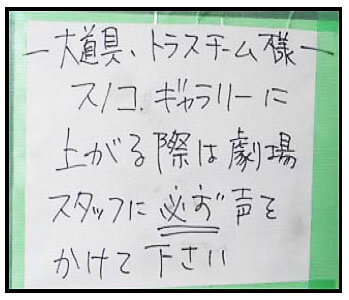 ー大道具、トラスチーム様ー
スノコ、ギャラリーに
上がる際は劇場
スタッフに必ず声を
かけて下さい